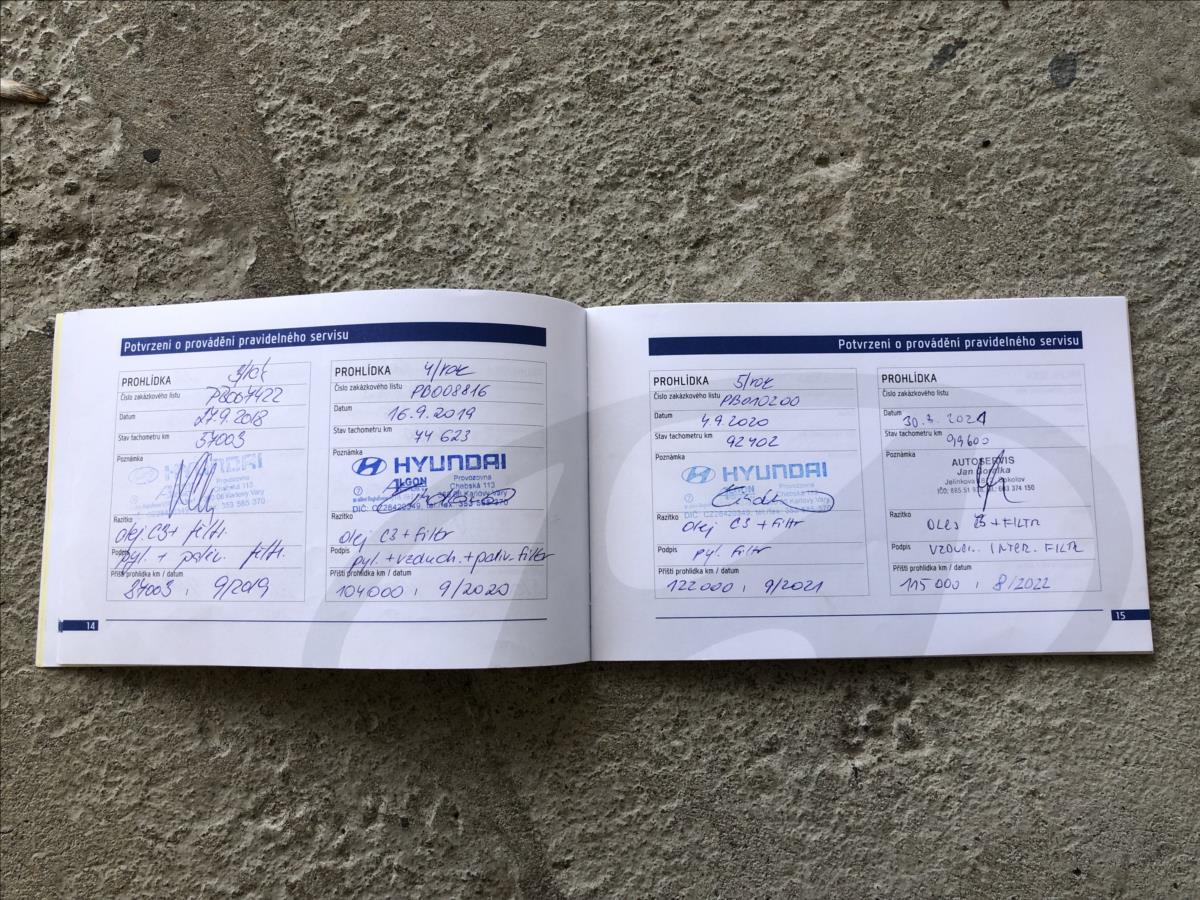 Potvrzení o provádění pravidelného servisu
PROHLÍDKA 3/rok
Číslo zakázkového listu
PB007422
Datum
27.9.2018
Stav tachometru km
57003
Poznámka
HYUNDAI
Provozovna
Chebská 113
06 Karlovy Vary
353 585 370
Razítko
olej C3 + filtr.
Podpis
pyl. + paliv. filtr.
Příští prohlídka km / datum
87003, 9/2019
14
PROHLÍDKA 4/rok
Číslo zakázkového listu
PB008816
Datum
16.9.2019
Stav tachometru km
74 623
Poznámka
HYUNDAI
ALGON
Provozovna
Chebská 113
Karlovy Vary
DIČ: CZ26420349, tel./fax: 353 585 370
Razítko
olej C3 + filtr
Podpis
pyl + vzduch. + paliv. filter
Příští prohlídka km / datum
104000, 9/2020
Potvrzení o provádění pravidelného servisu
PROHLÍDKA 5/rok
Číslo zakázkového listu
PB010200
Datum
4.9.2020
Stav tachometru km
92402
Poznámka
HYUNDAI
Provozovna
Chebská 113
Karlovy Vary
Razítko
olej C3 + filtr
Podpis
pyl. filtr
Příští prohlídka km / datum
122000, 9/2021
PROHLÍDKA
Číslo zakázkového listu
Datum
30.3.2021
Stav tachometru km
99600
Poznámka
AUTOSERVIS
Jan
Jelínkova Sokolov
374 150
Razítko
OLEJ + FILTR
Podpis
VZDUCH. INTER. FILTR
Příští prohlídka km / datum
115000, 8/2022
15